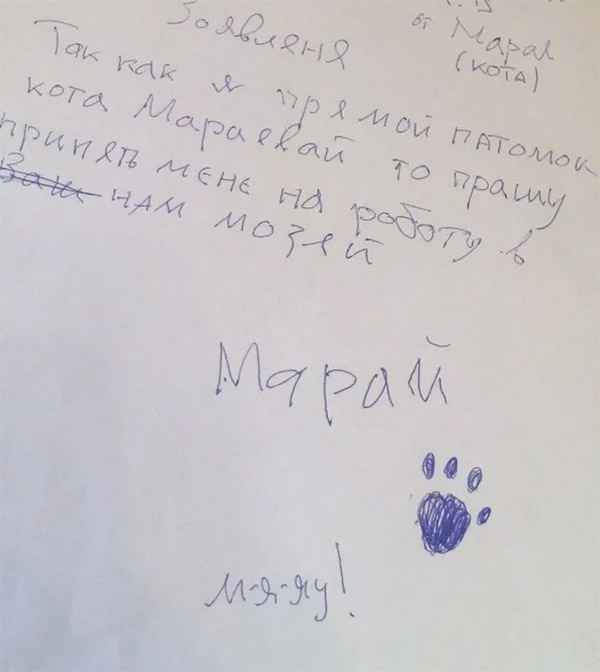 Зоявленя
от Марая
(кота)
Так как я прямой патомок
кота Мараевай то прашу
принять мене на роботу в
Ваш нам мозей
Марай
м-я-яу!